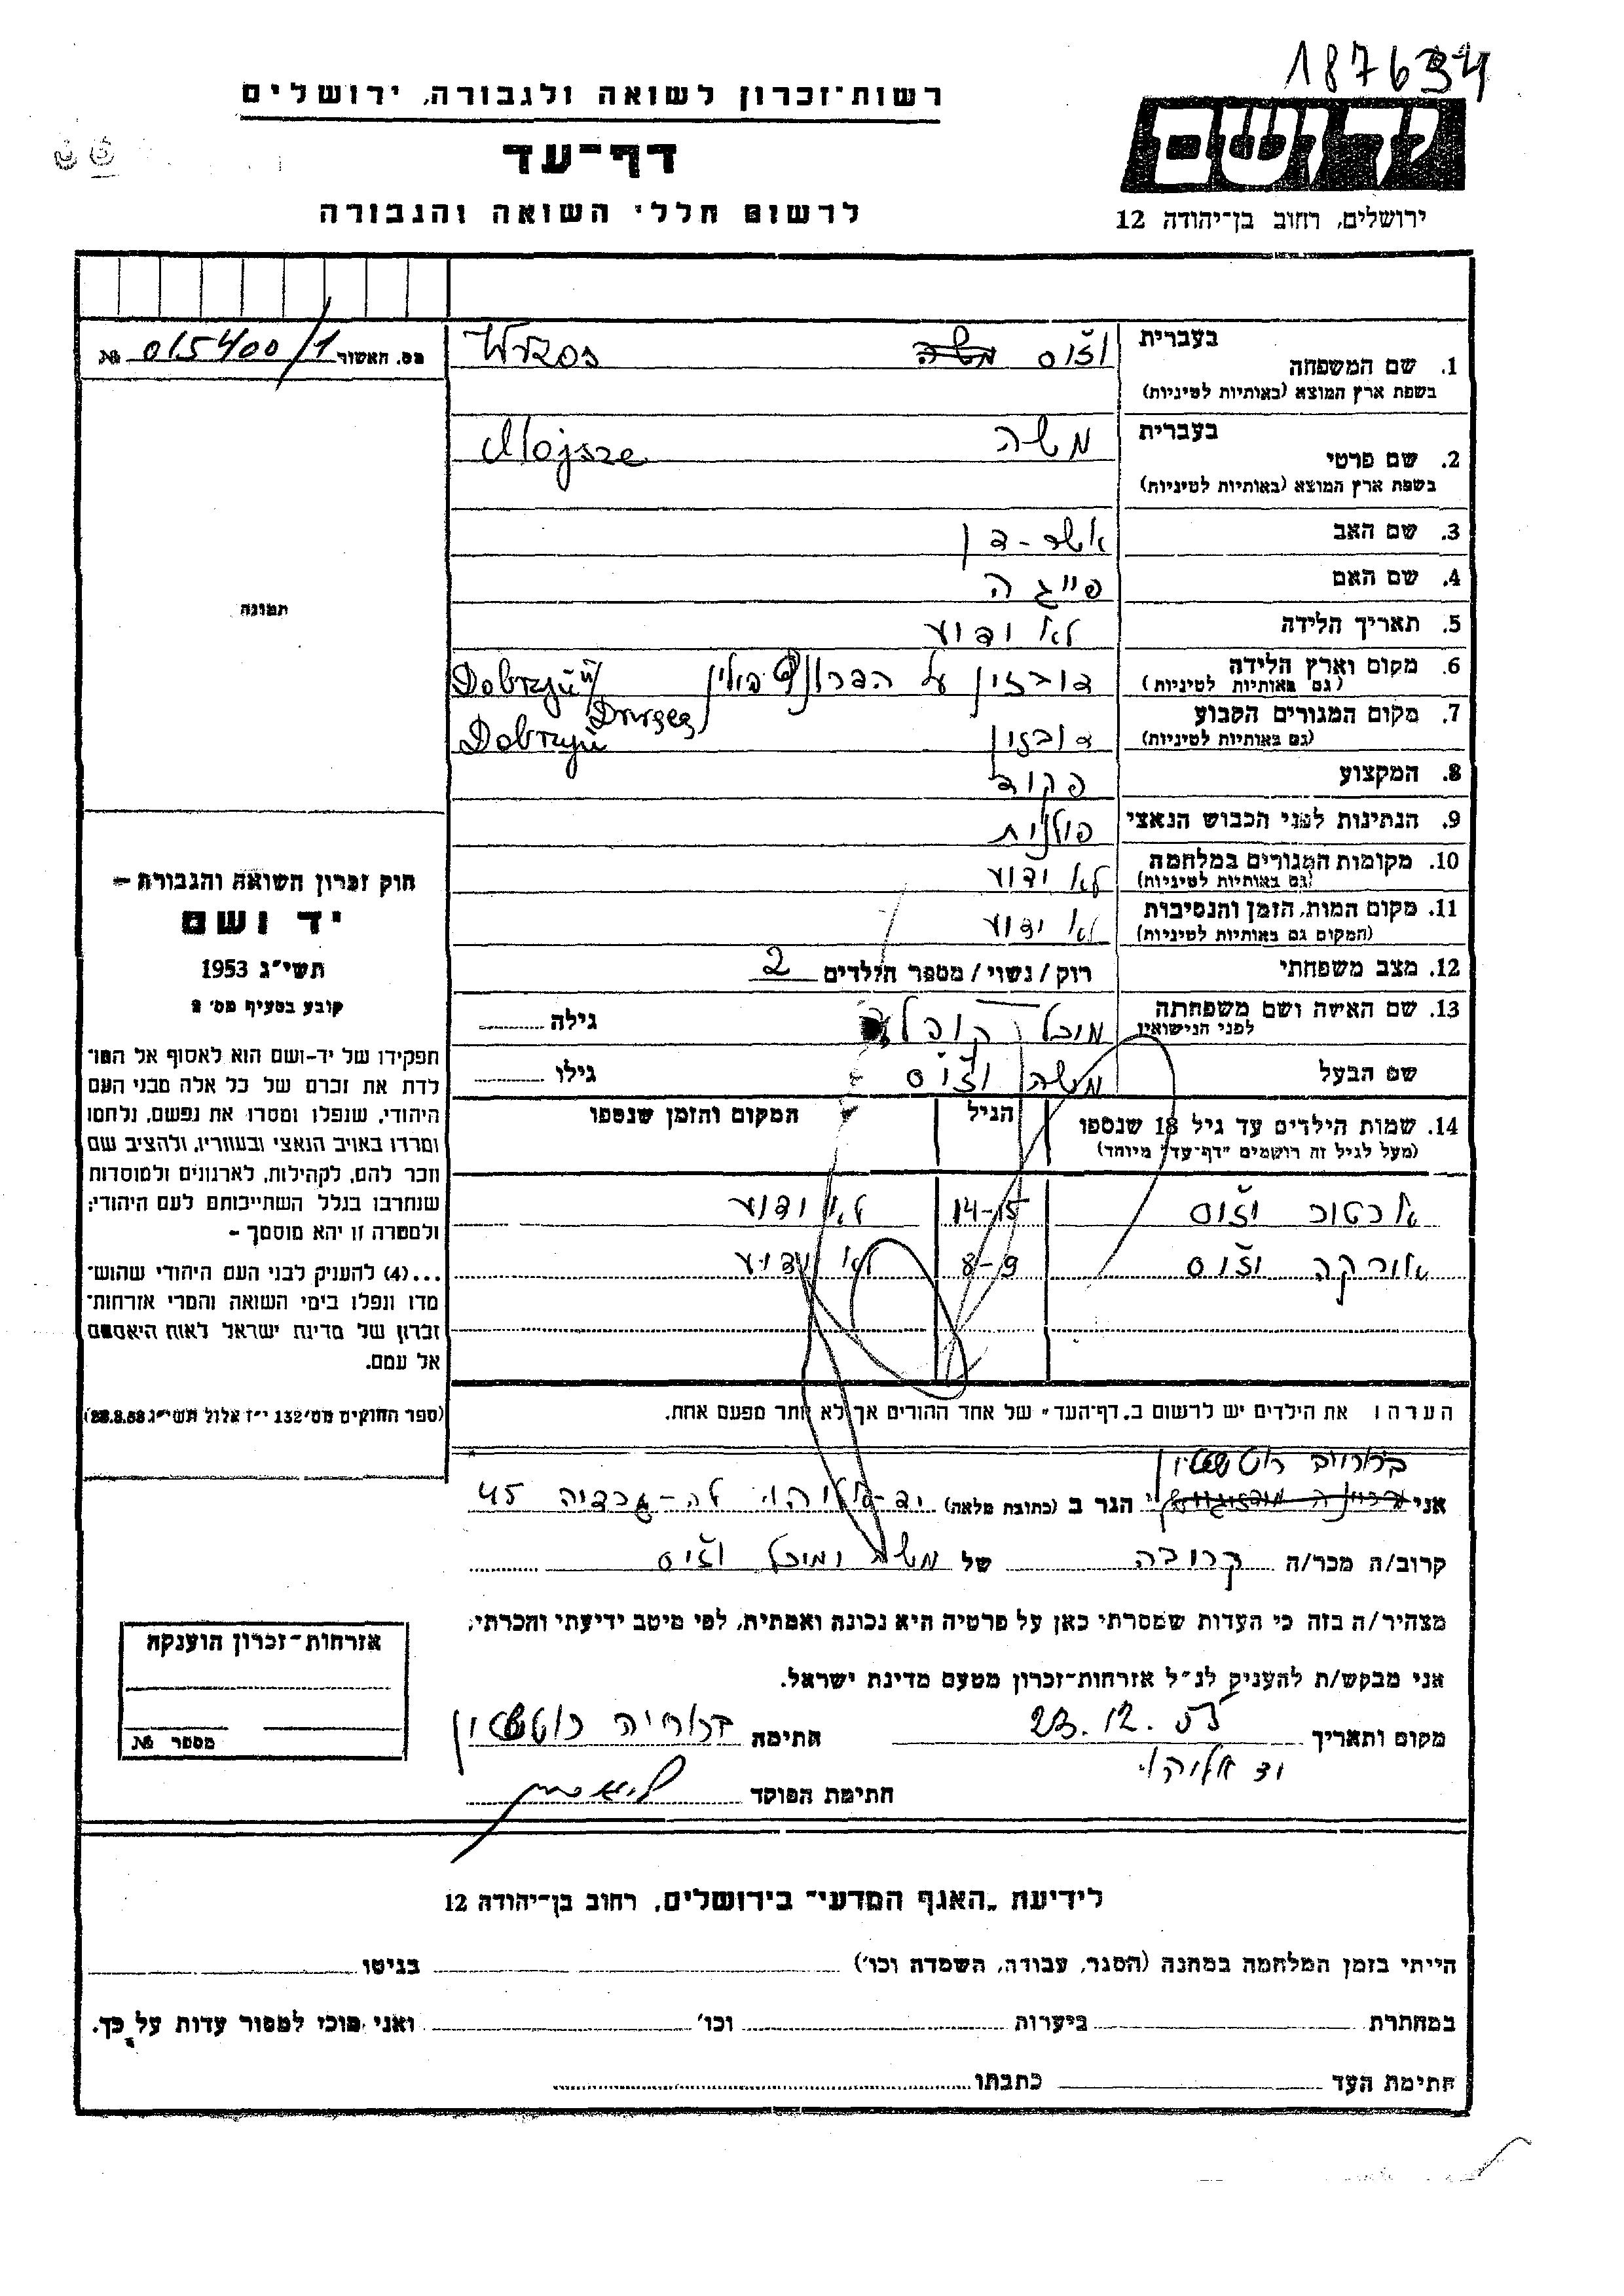 187634
רשות־זכרון לשואה ולגבורה, ירושלים
יד ושם
דף־עד
ירושלים, רחוב בן־יהודה 12
לרשום חללי השואה והגבורה
מס. האשור № 015400/1
1. שם המשפחה בעברית וז'וס משה Wrzos
בשפת ארץ המוצא (באותיות לטיניות)
2. שם פרטי בעברית משה Mojsze
בשפת ארץ המוצא (באותיות לטיניות)
3. שם האב אשר-דן
4. שם האם פייגה
5. תאריך הלידה לא ידוע
6. מקום וארץ הלידה דוברזין על פולין Dobrzyń n/
(גם באותיות לטיניות)
7. מקום המגורים הקבוע דוברזין Dobrzyń
(גם באותיות לטיניות)
8. המקצוע פקיד
9. הנתינות לפני הכבוש הנאצי פולנית
10. מקומות המגורים במלחמה לא ידוע
(גם באותיות לטיניות)
11. מקום המות, הזמן והנסיבות לא ידוע
(המקום גם באותיות לטיניות)
12. מצב משפחתי רוק / נשוי / מספר הילדים 2
13. שם האשה ושם משפחתה מיכל גילה
לפני הנישואין
שם הבעל משה וז'וס גילו
14. שמות הילדים עד גיל 18 שנספו הגיל המקום והזמן שנספו
(מעל לגיל זה רושמים "דף־עד" מיוחד)
וז'וס 14-15 לא ידוע
וז'וס 8-9 לא ידוע
הערה: את הילדים יש לרשום ב„דף־העד" של אחד ההורים אך לא יותר מפעם אחת.
תמונה
חוק זכרון השואה והגבורה –
יד ושם
תשי"ג 1953
קובע בסעיף מס' 2
תפקידו של יד-ושם הוא לאסוף אל המו־
לדת את זכרם של כל אלה מבני העם
היהודי, שנפלו ומסרו את נפשם, נלחמו
ומרדו באויב הנאצי ובעוזריו, ולהציב שם
וזכר להם, לקהילות, לארגונים ולמוסדות
שנחרבו בגלל השתייכותם לעם היהודי;
ולמטרה זו יהא מוסמך –
...(4) להעניק לבני העם היהודי שהוש־
מדו ונפלו בימי השואה והמרי אזרחות־
זכרון של מדינת ישראל לאות היאספם
אל עמם.
(ספר החוקים מס' 132 י"ז אלול תשי"ג 28.8.53)
אני הגר ב (כתובת מלאה) יד-אליהו לה-גרדיה 45
קרוב/ה מכר/ה קרובה של משה ומיכל וז'וס
מצהיר/ה בזה כי העדות שמסרתי כאן על פרטיה היא נכונה ואמתית, לפי מיטב ידיעתי והכרתי.
אני מבקש/ת להעניק לנ"ל אזרחות־זכרון מטעם מדינת ישראל.
מקום ותאריך 23.12.55 חתימה
יד אליהו
חתימת הפוקד
אזרחות־זכרון הוענקה
מספר №
לידיעת „האגף המדעי" בירושלים, רחוב בן־יהודה 12
הייתי בזמן המלחמה במחנה (הסגר, עבודה, השמדה וכו') בגיטו
במחתרת ביערות וכו' ואני מוכן למסור עדות על כך.
חתימת העד כתבתו